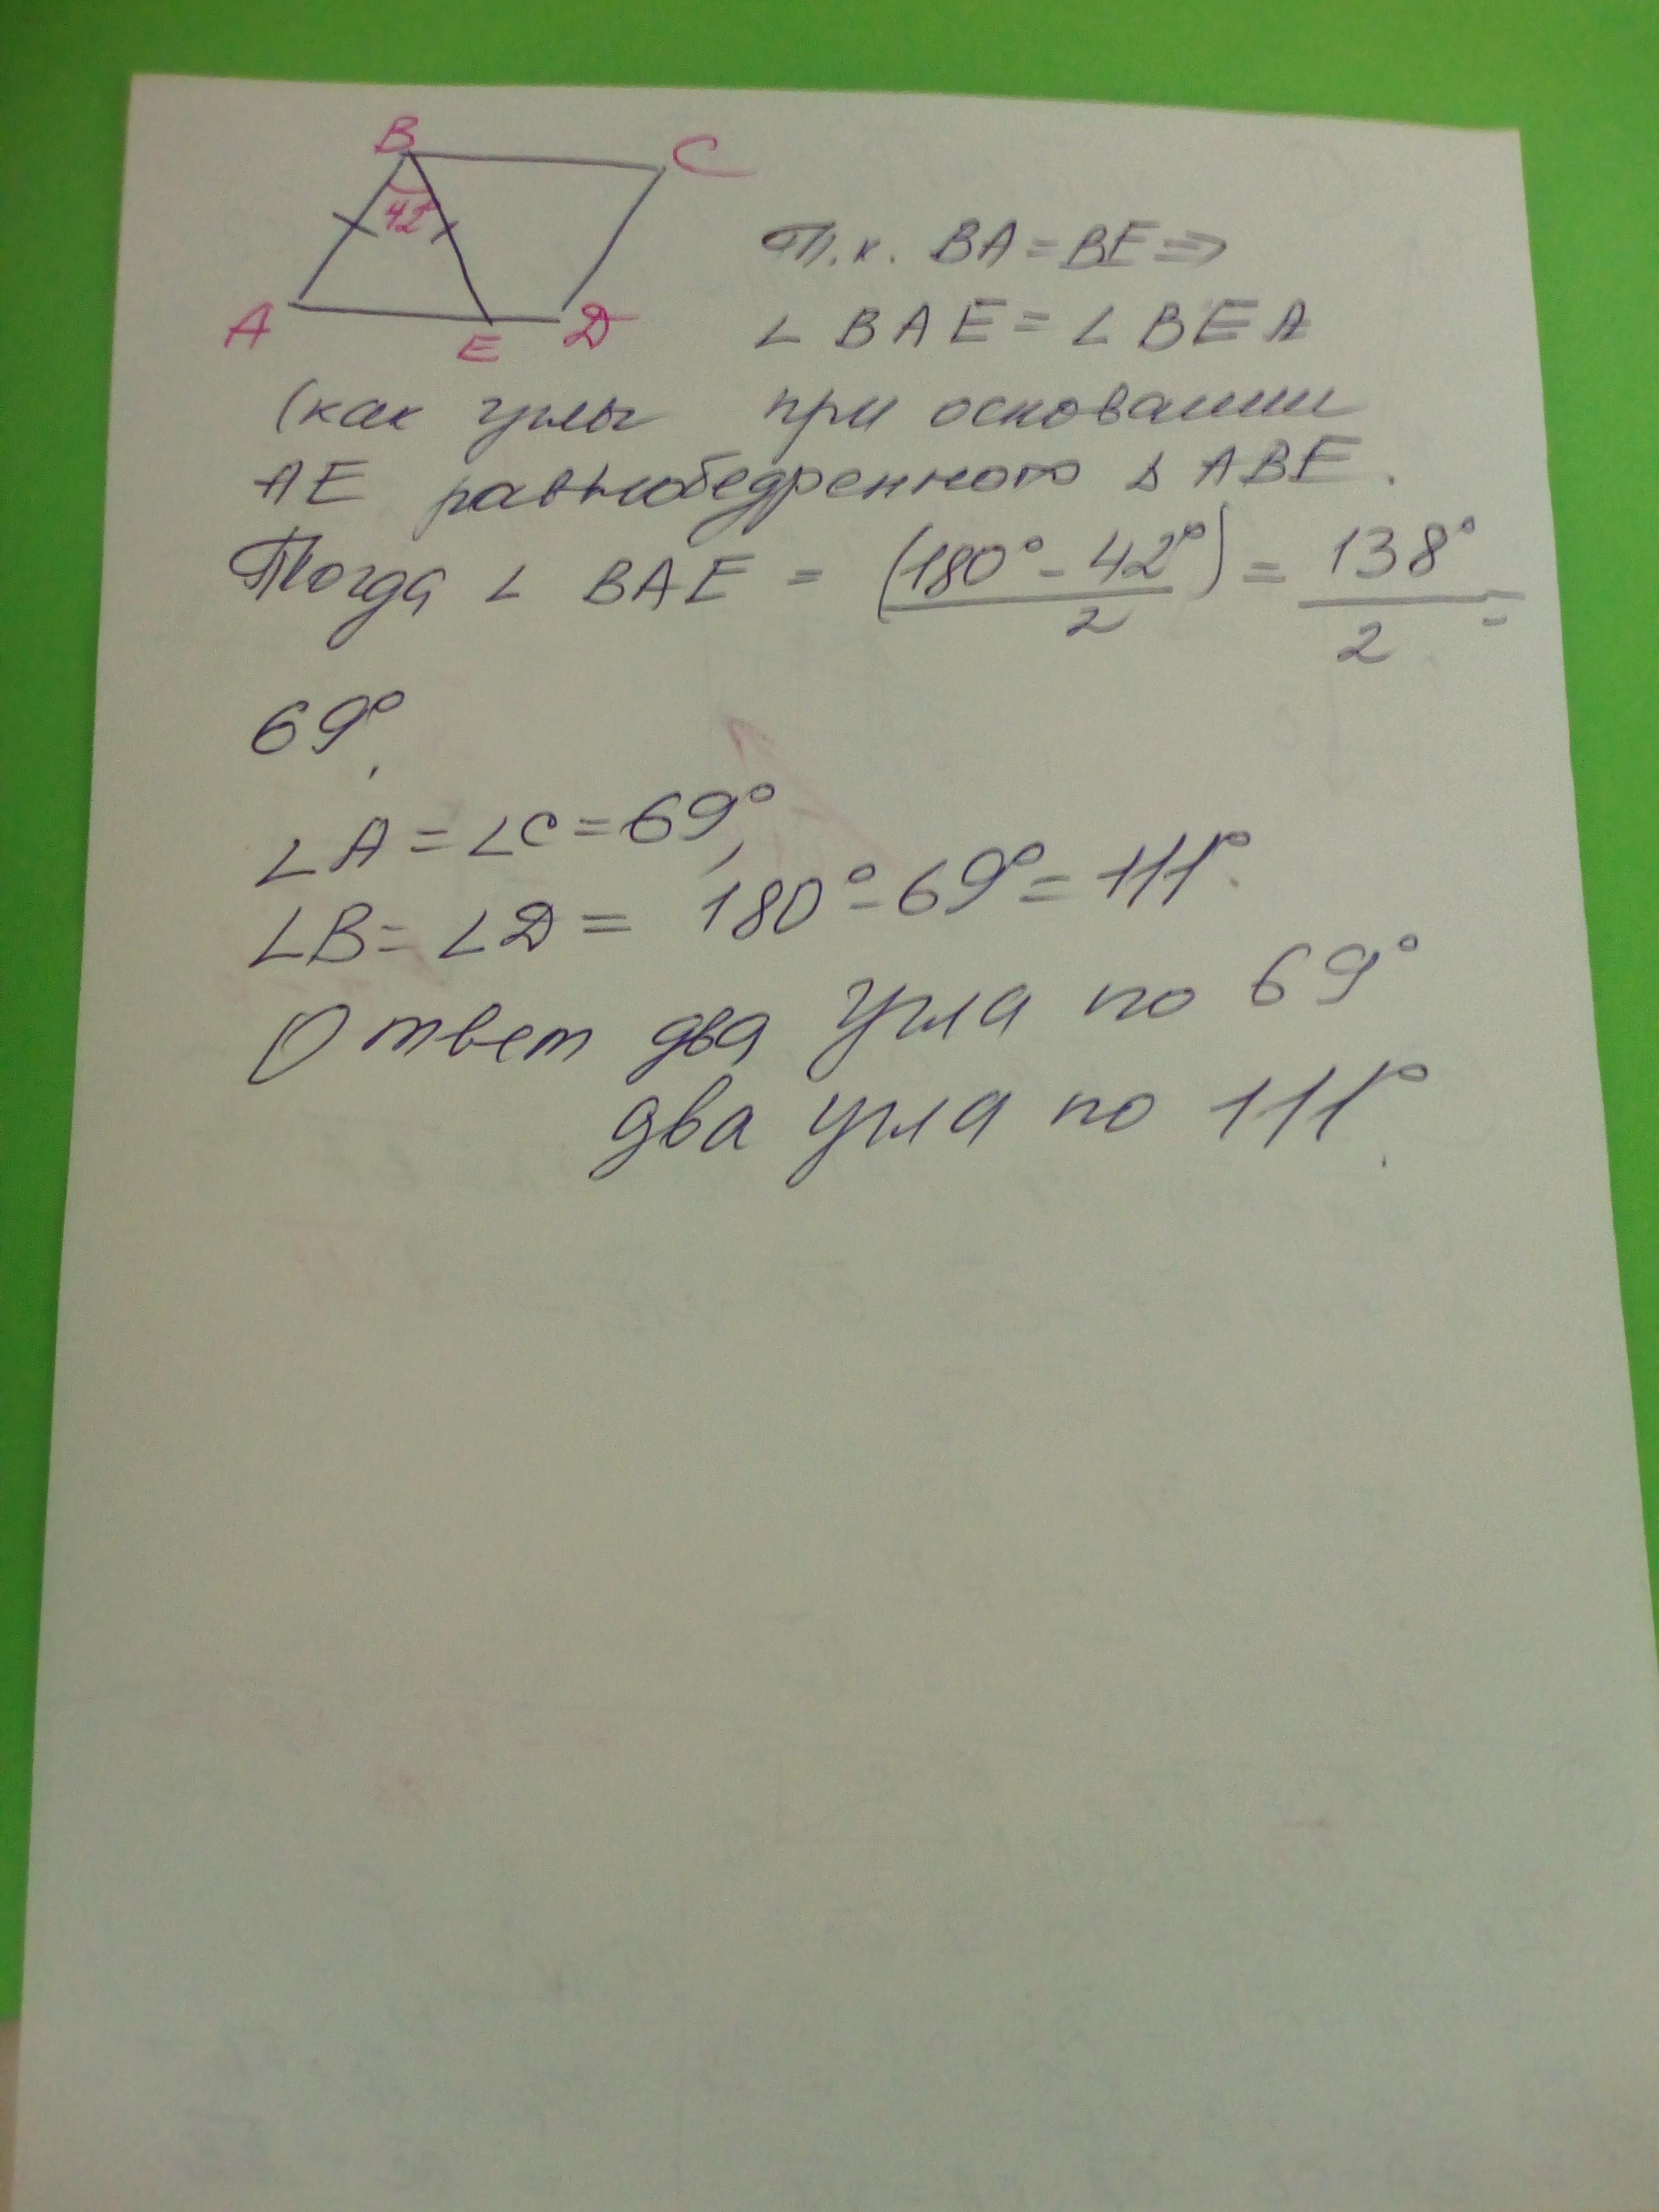 B
C
42°
A
E
D
Т.к. BA = BE ⇒
∠ BAE = ∠ BEA
(как углы при основании
AE равнобедренного Δ ABE.
Тогда ∠ BAE = (180° - 42°)/2 = 138°/2 =
69°,
∠A = ∠C = 69°,
∠B = ∠D = 180° - 69° = 111°.
Ответ два угла по 69°
два угла по 111°.